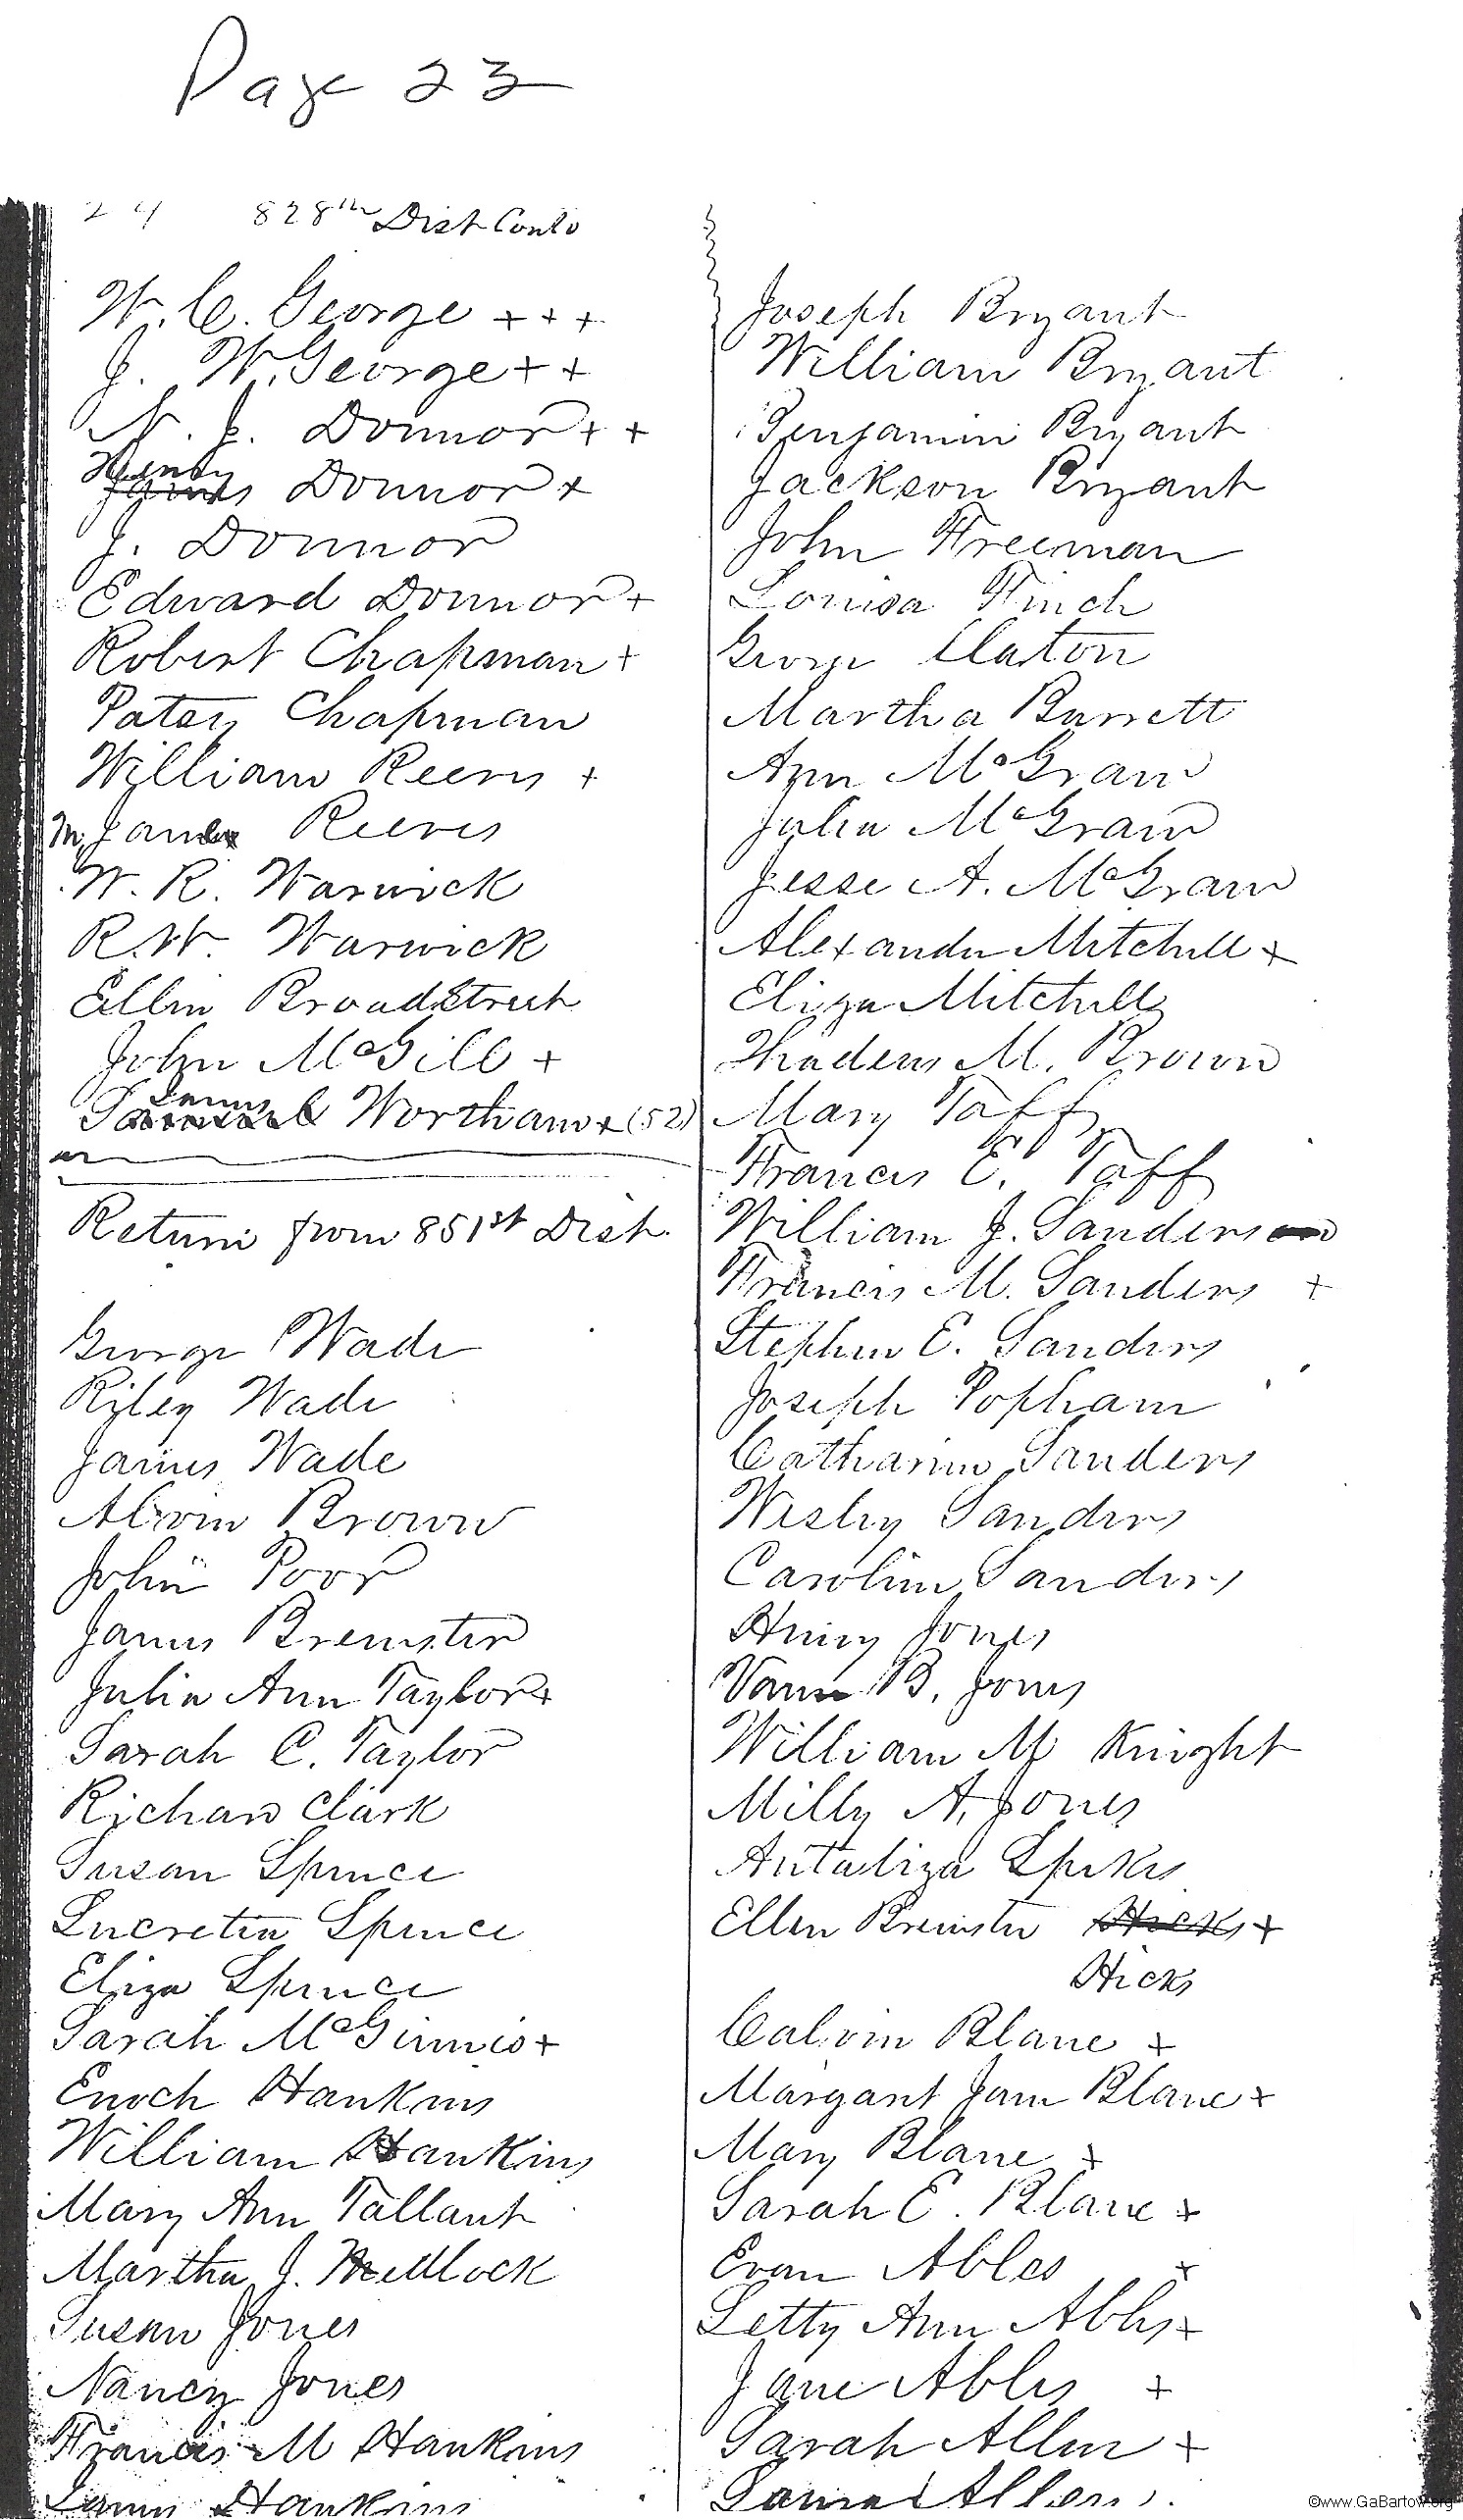 Page 23
24 828th Dist Contd
W. C. George + + +
J. W. George + +
N. J. Donnor + +
Henry
James Donnor +
J. Donnor
Edward Donnor +
Robert Chapman +
Patey Chapman
William Reevs +
M, Jane Reeves
W. R. Warwick
R. W. Warwick
Ellen Broadstreet
John McGill +
Wortham + (52)
Return from 851st Dist.
George Wade
Riley Wade
James Wade
Alvin Brown
John Poor
James Brewster
Julia Ann Taylor +
Sarah C. Taylor
Richard Clark
Susan Spruce
Lucretia Spruce
Eliza Spruce
Sarah McGinnis +
Enoch Hankins
William Hankins
Mary Ann Tallant
Martha J. Medlock
Susan Jones
Nancy Jones
Francis M Hankins
Hankins
Joseph Bryant
William Bryant
Benjamin Bryant
Jackson Bryant
John Freeman
Louisa Finch
George Claton
Martha Barrett
Ann McGraw
Julia McGraw
Jesse A. McGraw
Alexander Mitchell +
Eliza Mitchell
Thadeus M. Brown
Mary Taff
Francis E. Taff
William J. Sanderson
Francis M. Sanders +
Stephen E. Sanders
Joseph Popham
Catharine Sanders
Wesley Sanders
Caroline Sanders
Henry Jones
Vann B. Jones
William M Knight
Milly A. Jones
Antaliza Spikes
Ellen Brewster Hicks +
Hicks
Calvin Blane +
Margaret Jane Blane +
Mary Blane +
Sarah E. Blane +
Evan Ables +
Letty Ann Ables +
Jane Ables +
Sarah Allen +
Allen
©www.GaBartow.org